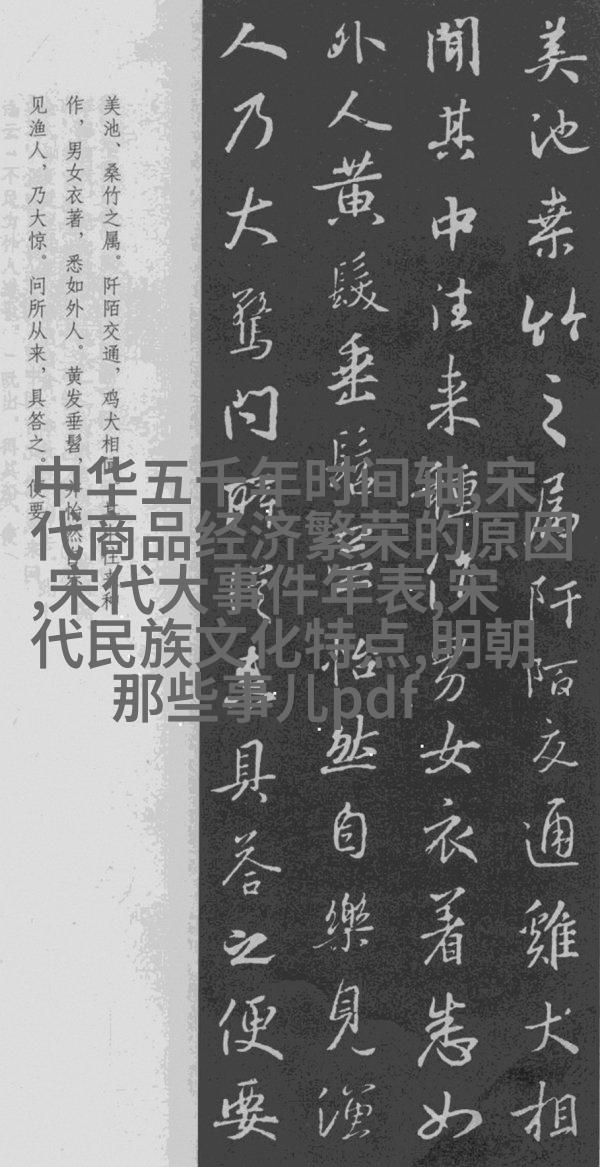 美池桑竹之屬阡陌交通雞犬相
聞其中往来種作男女衣着悉如
外人黄髮垂髫並怡然自樂見漁
人乃大驚问所從来具答之便要
美池、桑竹之属。阡陌交通，鸡犬相闻。其中往来种
作，男女衣著，悉如外人。黄发垂髫，并怡然自乐
见渔人，乃大惊。问所从来，具答之。便要
中华五千年时间轴,宋
代商品经济繁荣的原因
,宋代大事件年表,宋
代民族文化特点,明朝
那些事儿pdf